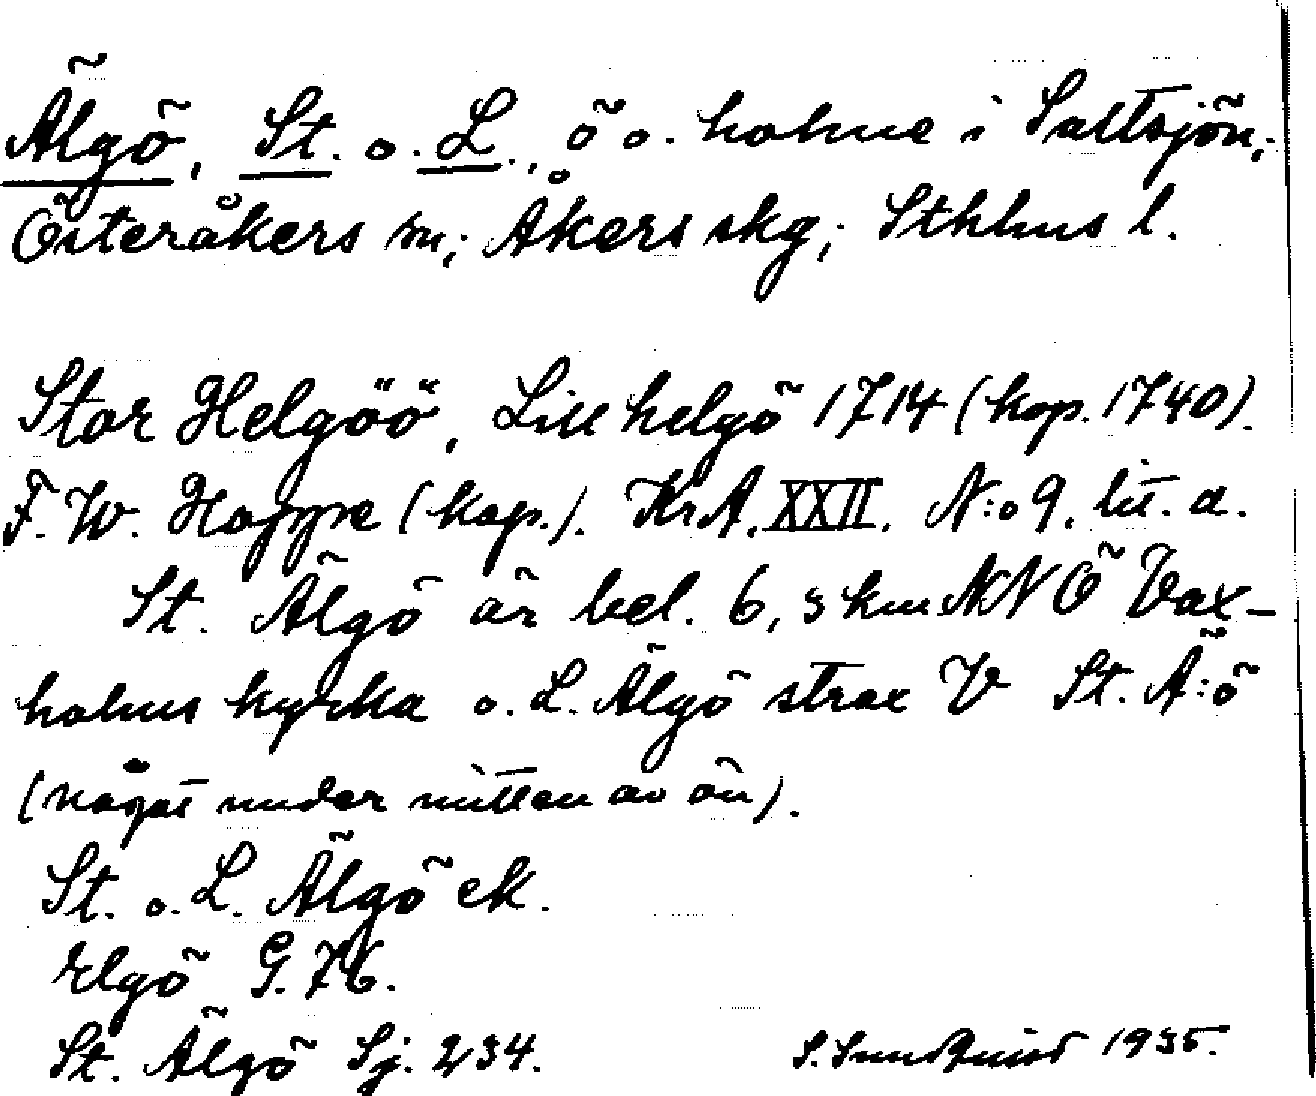 Älgö, St. o. L., ö o. holme i Saltsjön,
Österåkers sn; Åkers skg; Sthlms l.
Stor Helgöö, Lill helgö 1714 (kop. 1740).
F. W. Hoppe (kop.). KrA. XXII. N:o 9. lit. a.
St. Älgö är bel. 6,5 km NNÖ Vax-
holms kyrka o. L. Älgö strax V St. Ä:ö
(något under mitten av ön).
St. o. L. Älgö ek.
Elgö G. 76.
St. Älgö Sj. 234. S. Sundquist 1935.